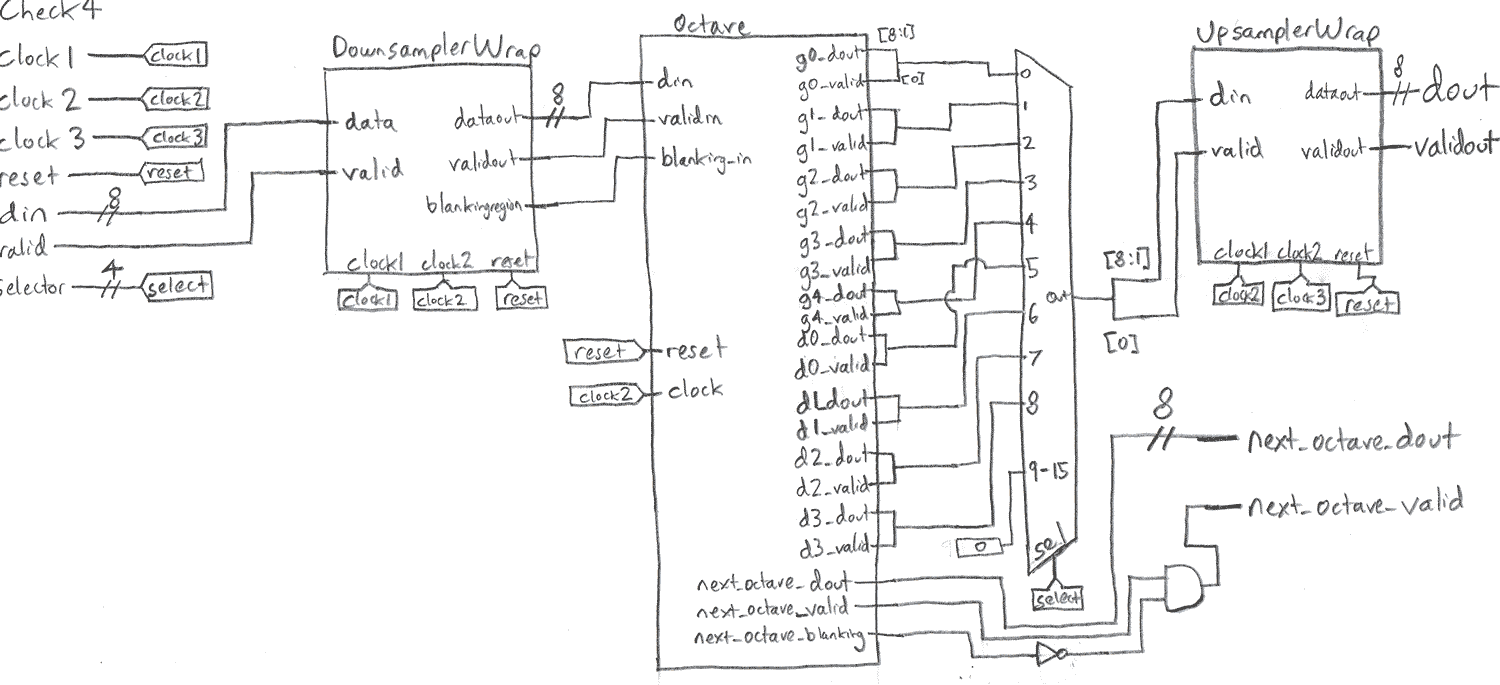 Check 4
Clock 1
clock1
clock 2
clock2
clock 3
clock3
reset
reset
din
8
valid
selector
4
select
DownsamplerWrap
data
valid
dataout
8
validout
blankingregion
clock1 clock2 reset
clock1
clock2
reset
Octave
din
validin
blanking_in
reset
reset
clock2
clock
g0_dout
[8:1]
g0_valid
[0]
g1_dout
g1_valid
g2_dout
g2_valid
g3_dout
g3_valid
g4_dout
g4_valid
d0_dout
d0_valid
d1_dout
d1_valid
d2_dout
d2_valid
d3_dout
d3_valid
next_octave_dout
next_octave_valid
next_octave_blanking
0
1
2
3
4
5
6
7
8
9-15
0
out
sel
select
[8:1]
[0]
UpsamplerWrap
din
valid
dataout
8
dout
validout
validout
clock1 clock2 reset
clock2
clock3
reset
8
next_octave_dout
next_octave_valid